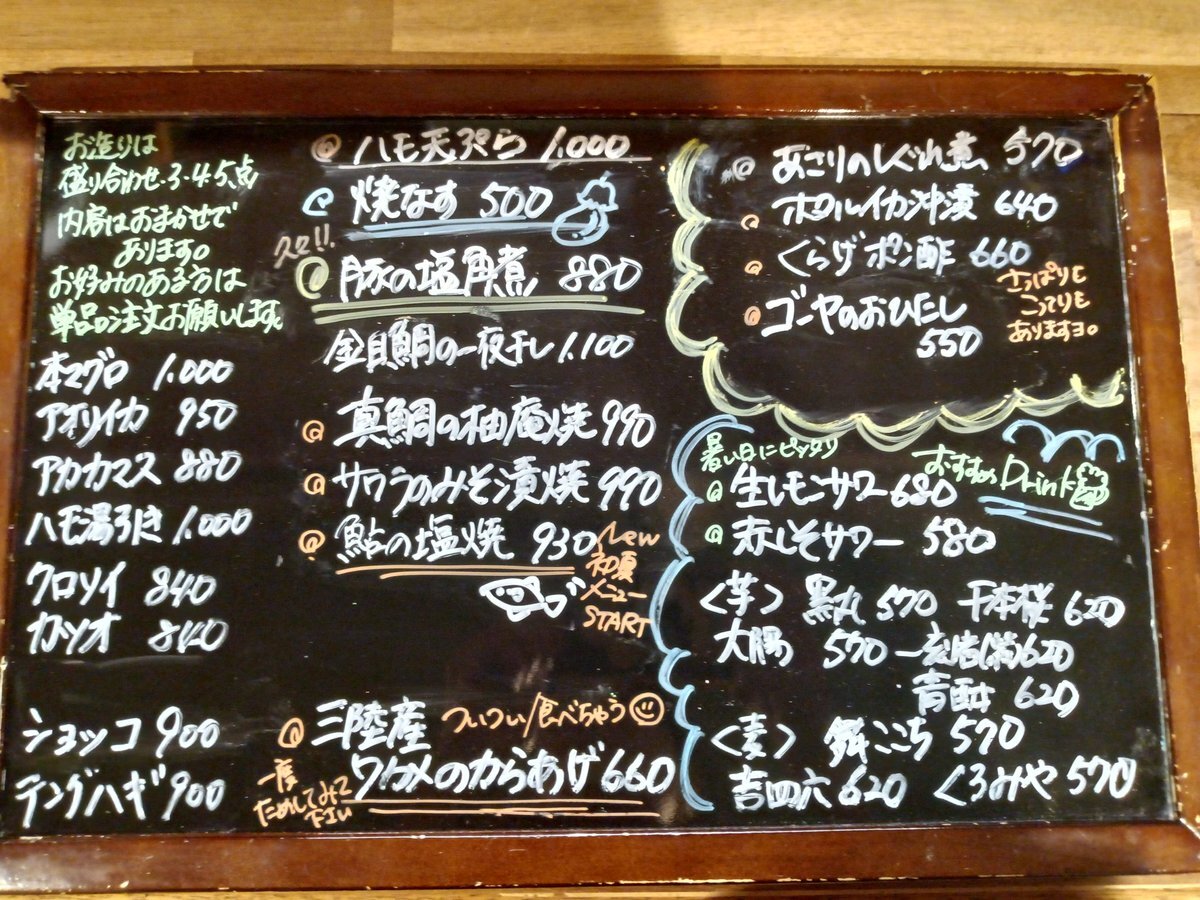 お造りは
盛り合わせ・3・4・5点
内容はおまかせで
あります。
お好みのある方は
単品の注文お願いします。
本マグロ 1.000
アオリイカ 950
アカカマス 880
ハモ湯引き 1.000
クロソイ 840
カツオ 840
ショッコ 900
テングハギ 900
ハモ天ぷら 1.000
焼なす 500
久々!!
豚の塩角煮 880
金目鯛の一夜干し 1.100
真鯛の柚庵焼 990
サワラのみそ漬焼 990
鮎の塩焼 930
New
初夏
メニュー
START
三陸産 ついつい食べちゃう
ワカメのからあげ 660
一度
ためしてみて
下さい
あさりのしぐれ煮 570
ホタルイカ沖漬 640
くらげポン酢 660
ゴーヤのおひたし
550
さっぱりも
こってりも
ありますヨ。
暑い日にピッタリ
おすすめ Drink
生レモンサワー 680
赤しそサワー 580
〈芋〉 黒丸 570 千本桜 620
大陽 570 一刻者(紫) 620
青酎 620
〈麦〉 舞ここち 570
吉四六 620 くろみや 570